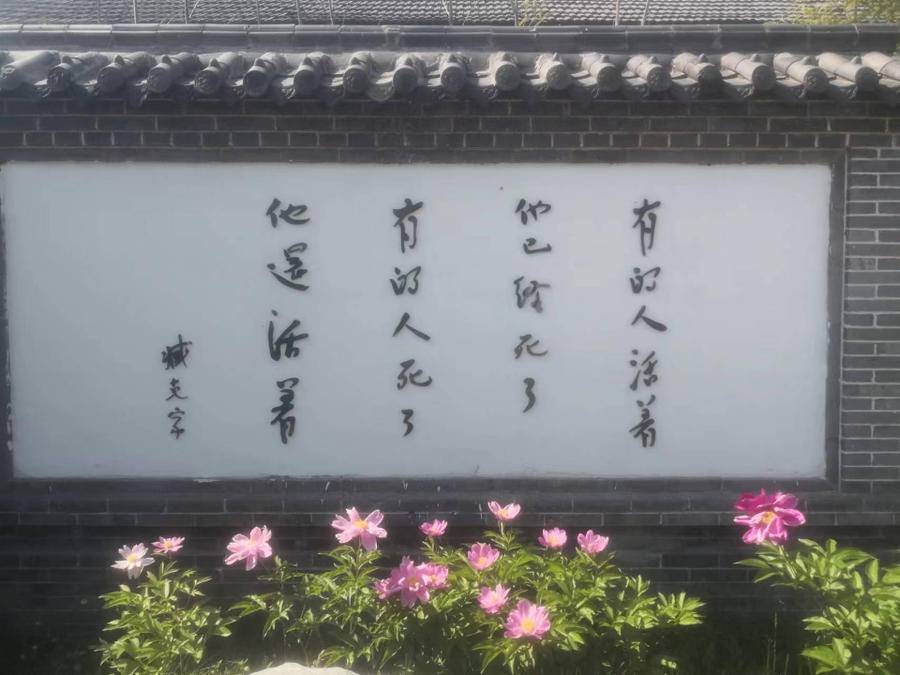 有的人活着
他已经死了
有的人死了
他还活着
臧克家